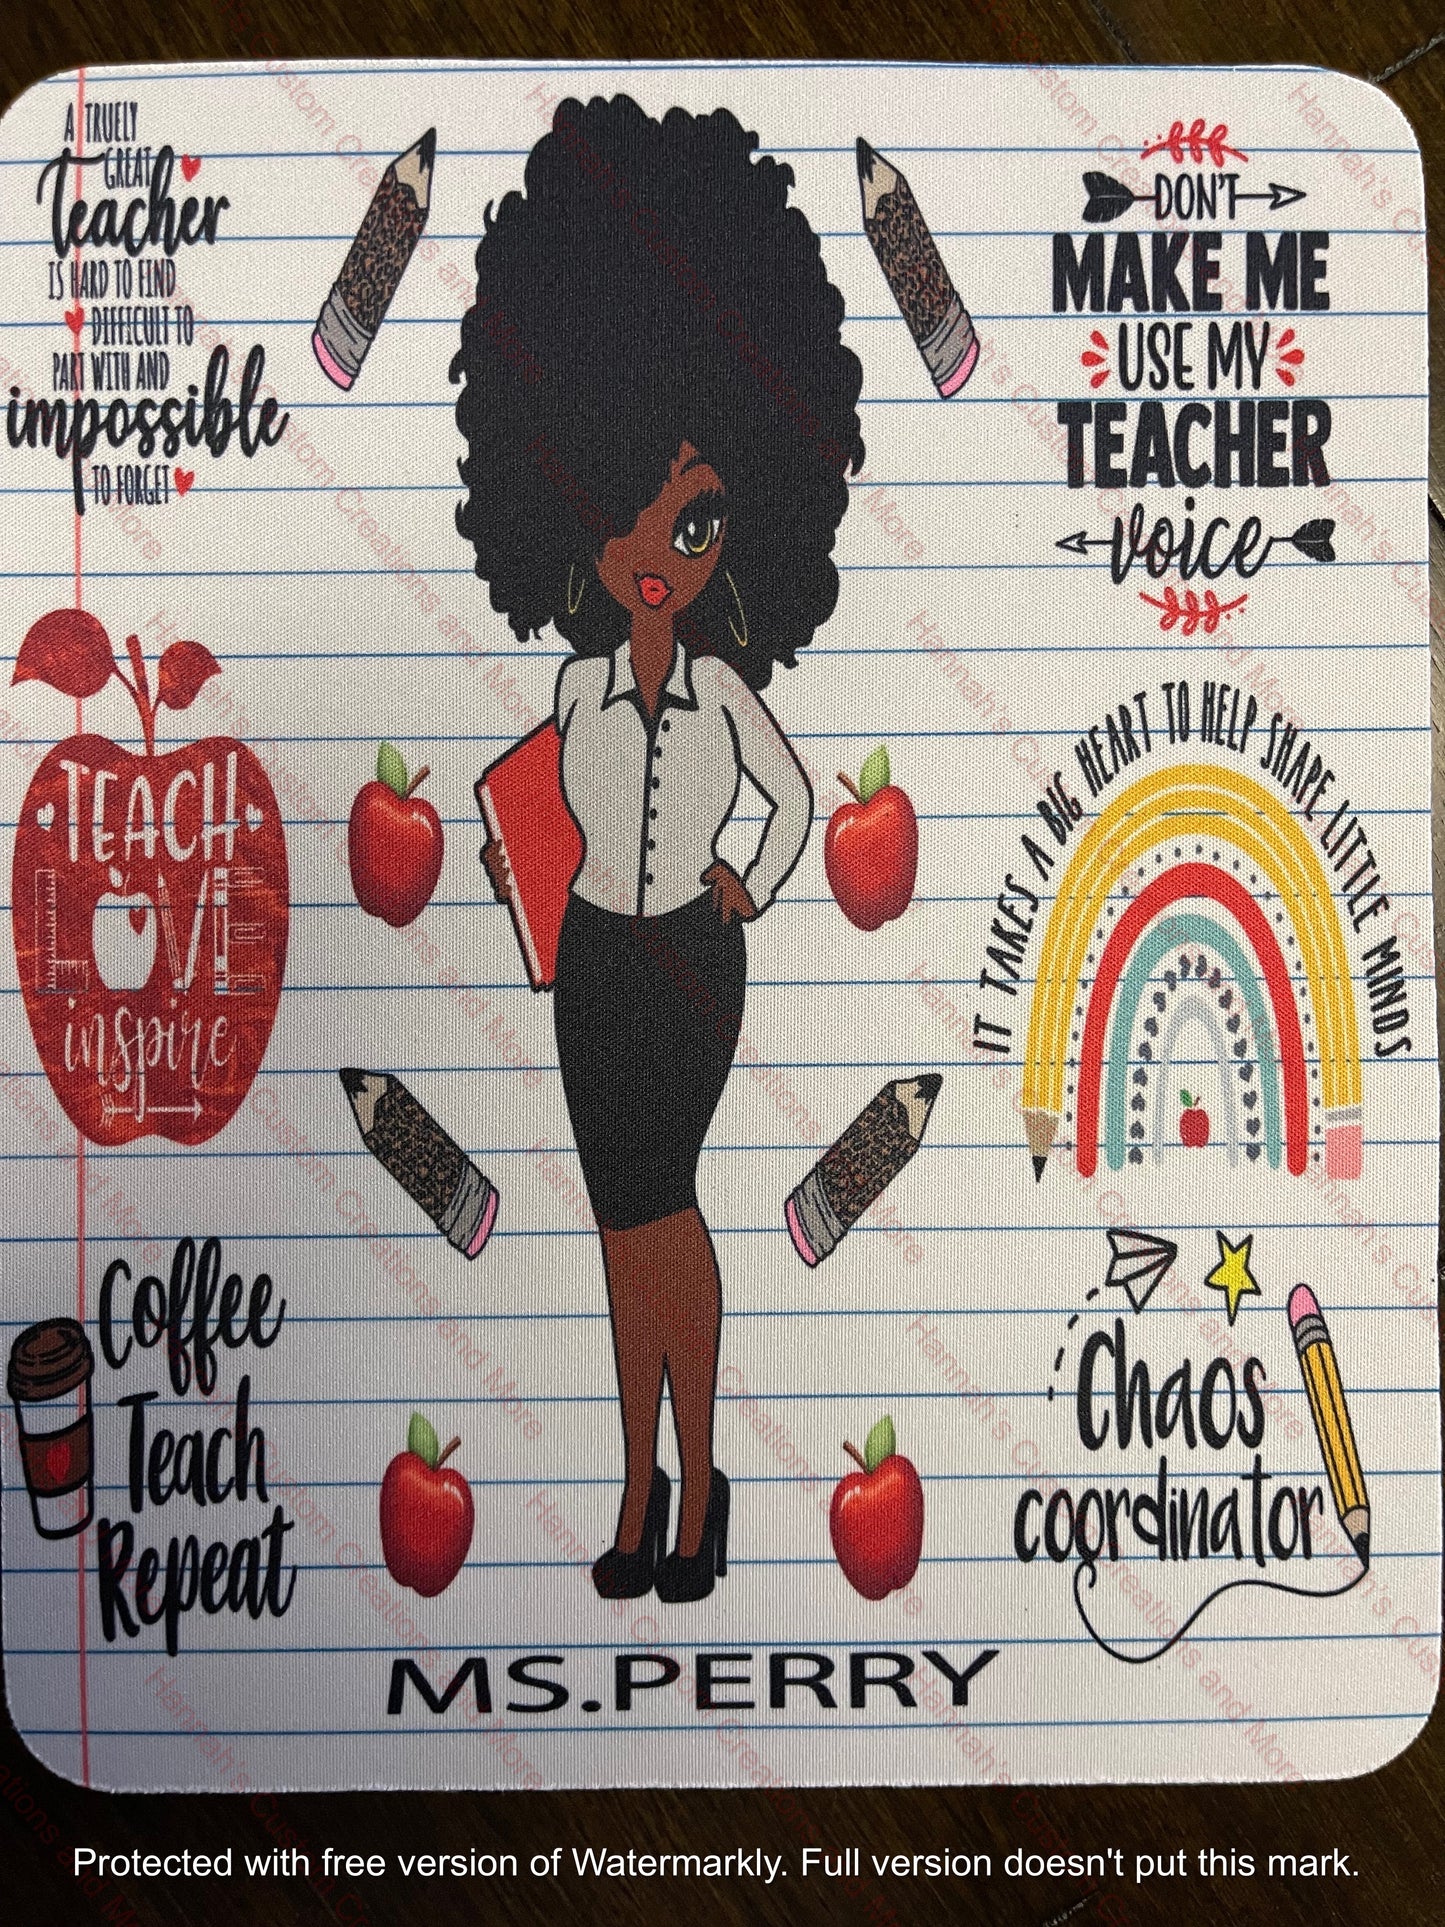 A TRUELY
GREAT
Teacher
IS HARD TO FIND
DIFFICULT TO
PART WITH AND
impossible
TO FORGET
DON'T
MAKE ME
USE MY
TEACHER
voice
TEACH
LOVE
inspire
IT TAKES A BIG HEART TO HELP SHAPE LITTLE MINDS
Coffee
Teach
Repeat
Chaos
coordinator
MS.PERRY
Hannah's Custom Creations and More
Protected with free version of Watermarkly. Full version doesn't put this mark.